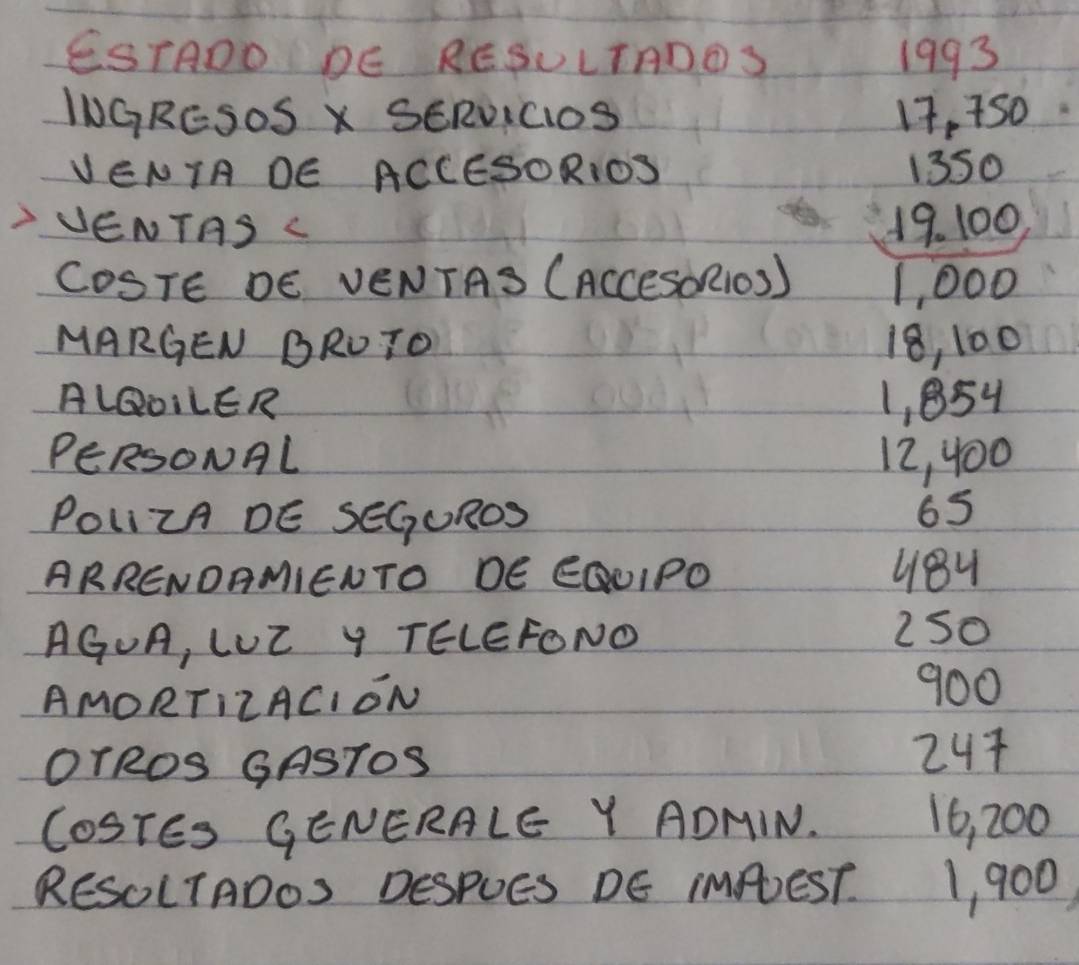 ESTADO DE RESULTADOS 1993
INGRESOS X SERVICIOS 17,750
VENTA DE ACCESORIOS 1350
> VENTAS < 19.100
COSTE DE VENTAS (ACCESORIOS) 1,000
MARGEN BRUTO 18,100
ALQUILER 1,854
PERSONAL 12,400
POLIZA DE SEGUROS 65
ARRENDAMIENTO DE EQUIPO 484
AGUA, LUZ Y TELEFONO 250
AMORTIZACIÓN 900
OTROS GASTOS 247
COSTES GENERALE Y ADMIN. 16,200
RESULTADOS DESPUES DE IMPUEST. 1,900